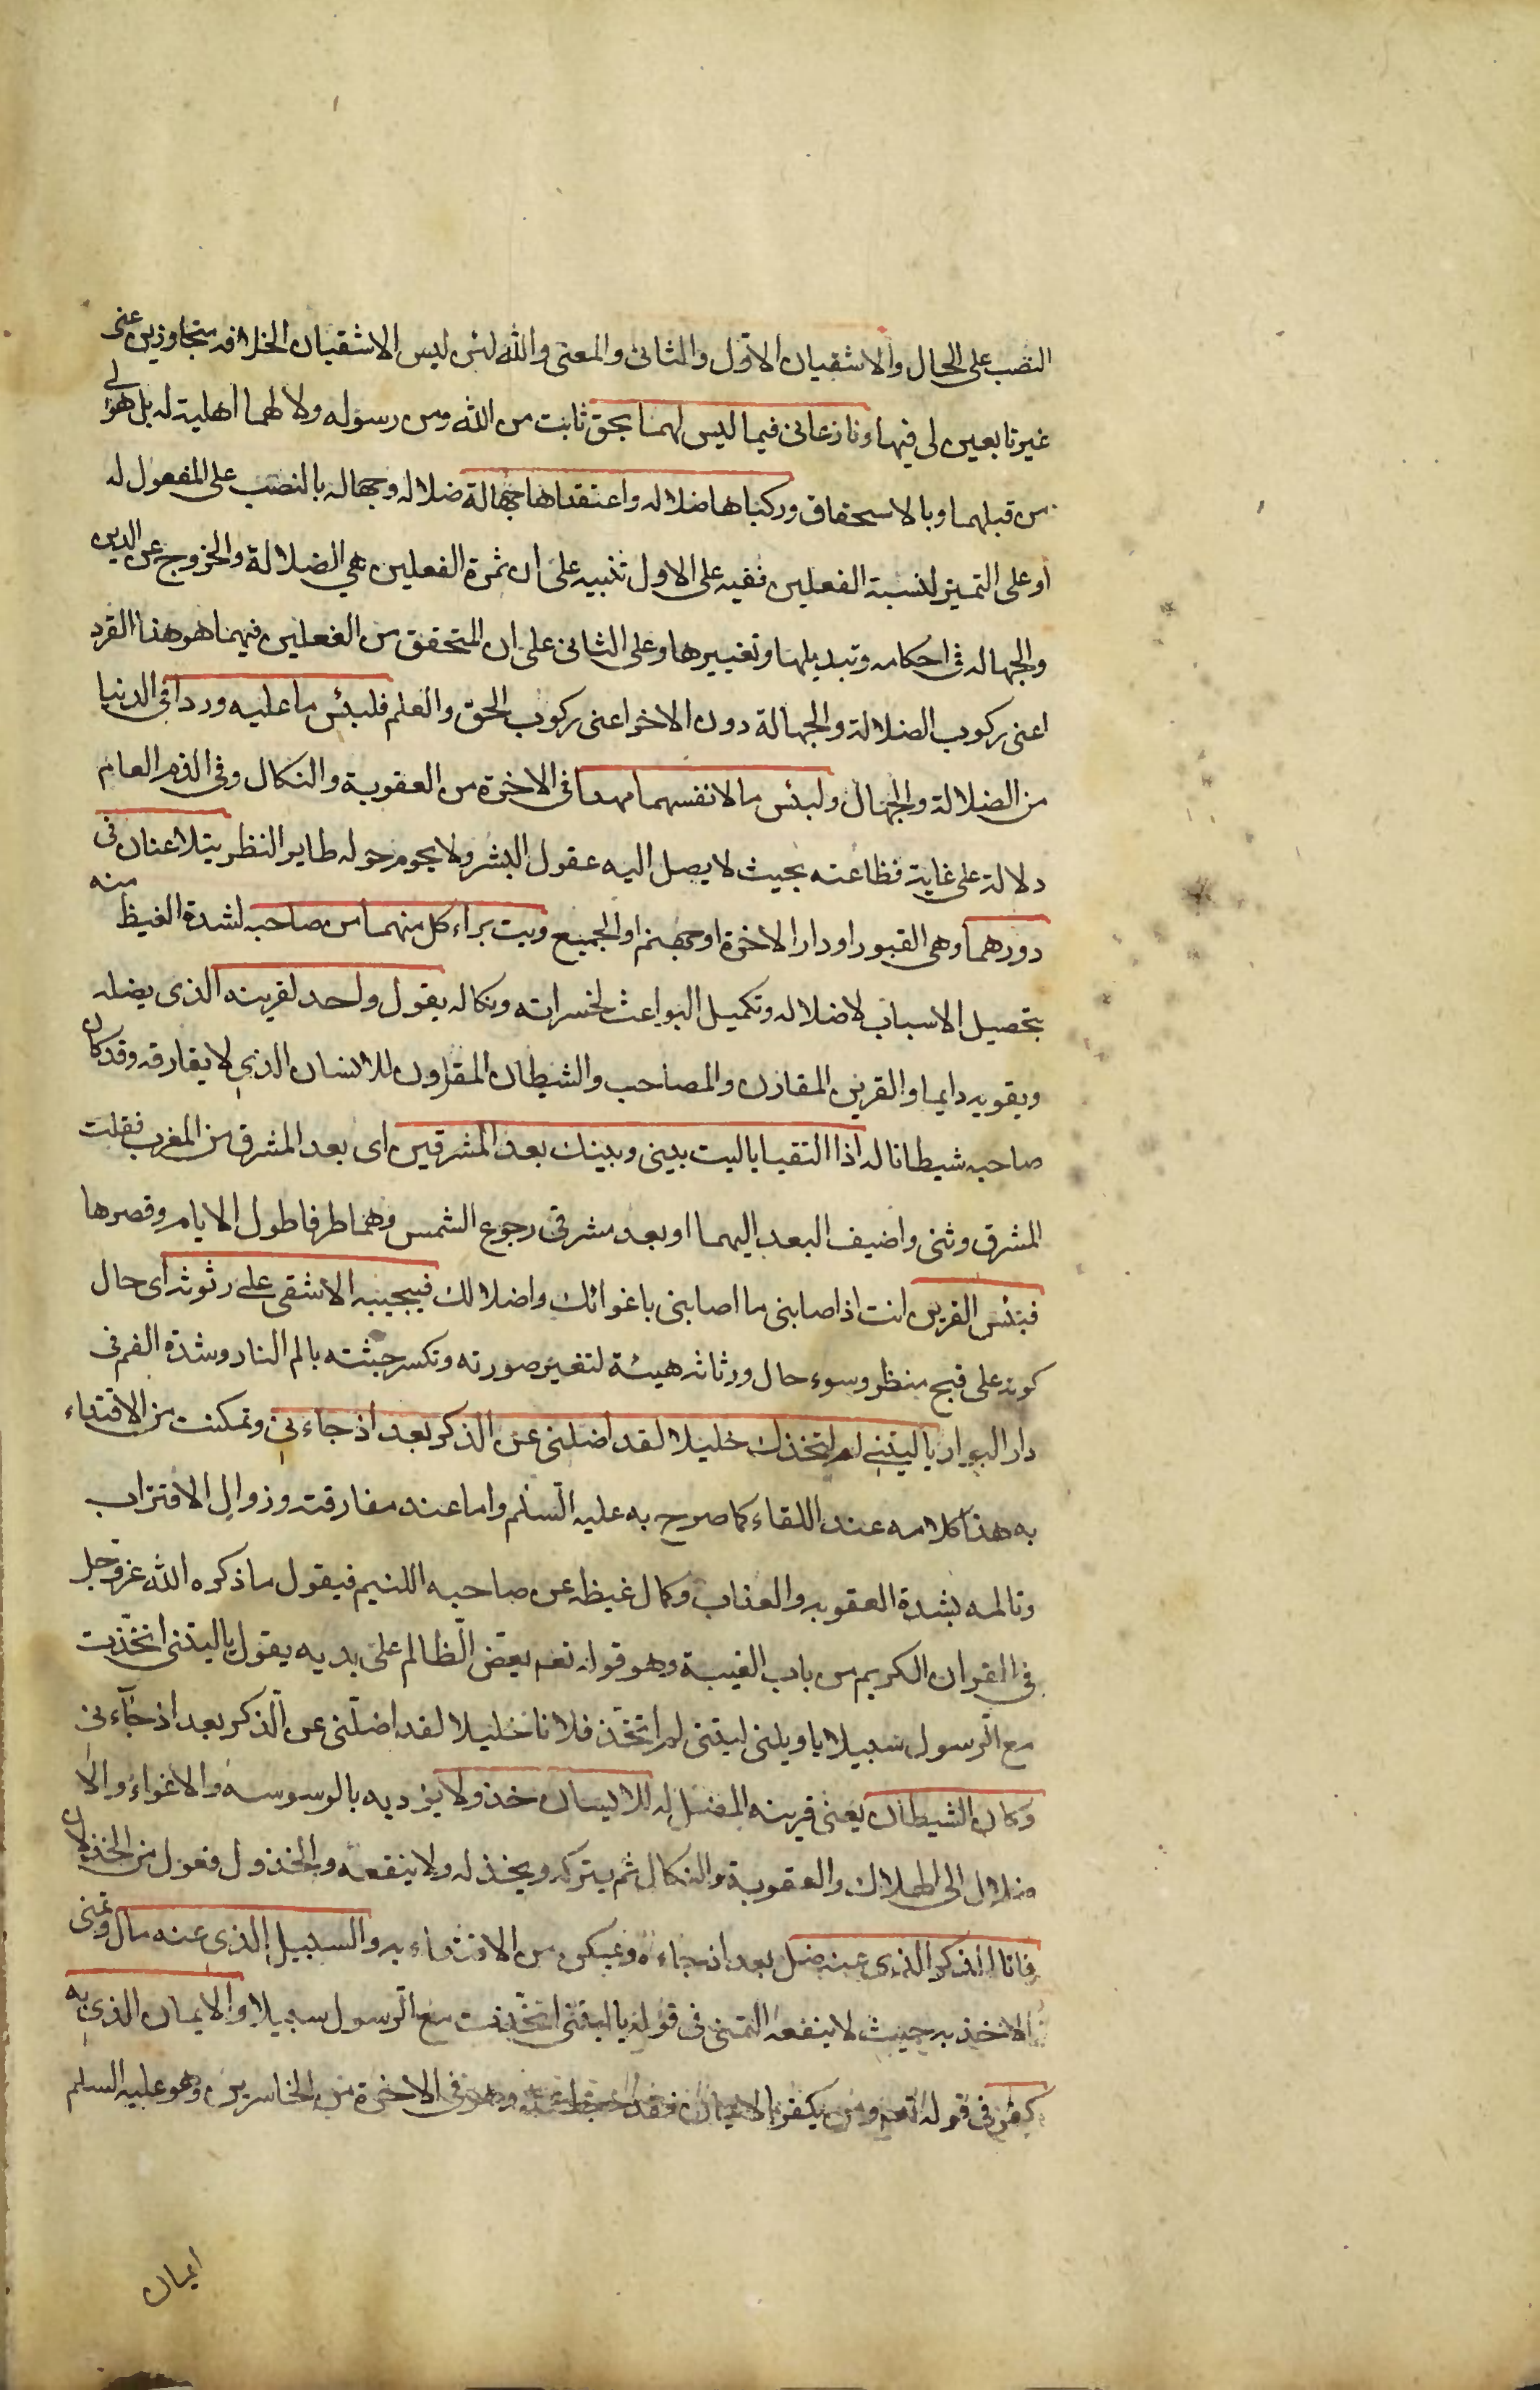 النصب على الحال والاشقيان الاوّل والثانى والمعنى والله لئن لبس الاشقيان الخلافه متجاوزين عنى
غير تابعين لى فيها ونازعانى فيما ليس لهما بحق ثابت من الله ومن رسوله ولا لهما اهلية له بل هو لى
من قبلهما وبالاستحقاق وركباها ضلاله واعتقداها جهالة ضلاله وجهاله بالنصب على المفعول له
او على التميز لنسبة الفعلين ففيه على الاول تنبيه على ان ثمرة الفعلين هى الضلالة والخروج عن الدين
والجهاله فى احكامه وتبديلها وتغييرها وعلى الثانى على ان المتحقق من الفعلين فيهما هو هذا الفرد
اعنى ركوب الضلالة والجهالة دون الاخر اعنى ركوب الحق والعلم فلبئس ما عليه وردا فى الدنيا
من الضلالة والجهال ولبئس ما لانفسهما مهدا فى الاخرة من العقوبة والنكال وفى الذم العام
دلالة على غاية فظاعته بحيث لا يصل اليه عقول البشر ولا يحوم حوله طاير النظر يتلاعنان فى
دورهما وهى القبور او دار الاخرة او جهنم او الجميع ويتبراء كل منهما من صاحبه لشدة الغيظ منه
بتحصيل الاسباب لاضلاله وتكميل البواعث لخسرانه ونكاله يقول واحد لقرينه الذى يضله
ويقويه دايما والقرين المقارن والمصاحب والشيطان المقرون للانسان الذى لا يفارقه وقد كان
صاحبه شيطانا له اذا التقيا ياليت بينى وبينك بعد المشرقين اى بعد المشرق من المغرب فغلبت
المشرق وثنى واضيف البعد اليهما او بعد مشرقى رجوع الشمس وهما طرفا طول الايام وقصرها
فبئس القرين انت اذ اصابنى ما اصابنى باغوائك واضلالك فيجيبه الاشقى على رثوثه اى حال
كونه على قبح منظر وسوء حال ورثاثه هيئة لتغير صورته وتكسر جثته بالم النار وشدة الغم فى
دار البوار ياليتنى لم اتخذك خليلا لقد اضلنى عن الذكر بعد اذ جاءنى وتمكنت من الاقتداء
به هذا كلامه عند اللقاء كما صرح به عليه السّلم واما عند مفارقته وزوال الاقتراب
وتالمه بشدة العقوبه والعذاب وكمال غيظه عن صاحبه اللئيم فيقول ما ذكره الله عز وجل
فى القران الكريم من باب الغيبة وهو قوله تعم يعضّ الظّالم على يديه يقول ياليتنى اتخّذت
مع الرّسول سبيلا ياويلتى ليتنى لم اتخّذ فلانا خليلا لقد اضلّنى عن الذّكر بعد اذ جاءنى
وكان الشيطان يعنى قرينه المضل له للانسان خذولا يؤديه بالوسوسه والاغواء والا
ضلال الى الهلاك والعقوبة والنكال ثم يتركه ويخذله ولا ينفعه والخذول فعول من الخذلان
فانا الذكر الذى عنه ضل بعد اذ جاءه وتمكن من الاقتداء به والسبيل الذى عنه مال وتمنى
الاخذ به حيث لا ينفعه التمنى فى قوله ياليتنى اتخّذت مع الرّسول سبيلا والايمان الذى به
كفر فى قوله تعم ومن يكفر بالايمان فقد حبط عمله وهو فى الاخرة من الخاسرين وهو عليه السلم
ايمان